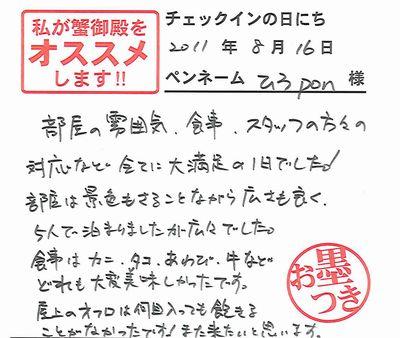 私が蟹御殿を
オススメ
します!!
チェックインの日にち
2011 年 8 月 16 日
ペンネーム ひろpon 様
部屋の雰囲気、食事、スタッフの方々の
対応など全てに大満足の1日でした!
部屋は景色もさることながら広さも良く、
5人で泊まりましたが広々でした。
食事はカニ、タコ、あわび、牛など
どれも大変美味しかったです。
屋上のオフロは何回入っても飽きる
ことがなかったです!また来たいと思います。
お墨
つき